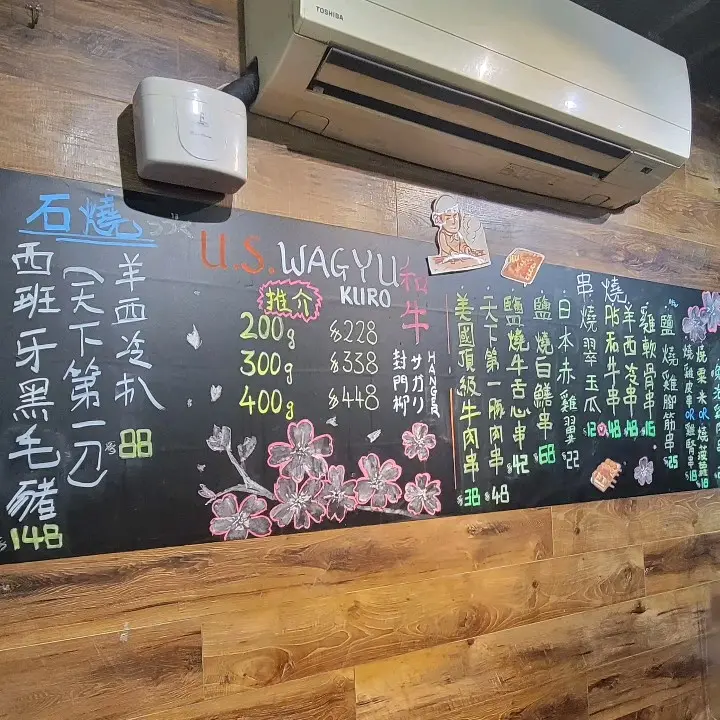 TOSHIBA
石燒
西班牙黑毛豬
$148
(天下第一刀)
羊西冷扒
$88
U.S. WAGYU
KURO
和牛
推介
200g $228
300g $338
400g $448
HANGER
サガリ
封門柳
美國頂級牛肉串
$38
天下第一豚肉串
$48
鹽燒牛舌心串
$42
鹽燒白鱔串
$68
日本赤雞翼
$22
串燒
串燒翠玉瓜
$12
脂和牛串
$48
羊西冷串
$48
雞軟骨串
$16
鹽燒雞腳筋串
$25
燒雞皮串OR雞腎串
$18
燒粟米OR燒菠蘿
$18